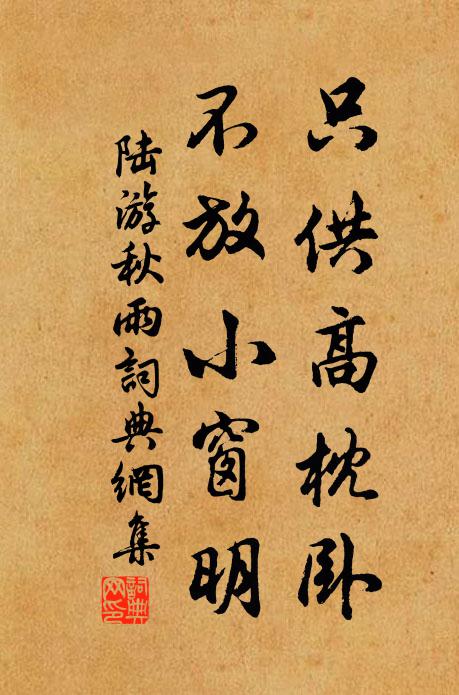 只供高枕卧
不放小窗明
陆游秋雨詞典網集
詞典网印